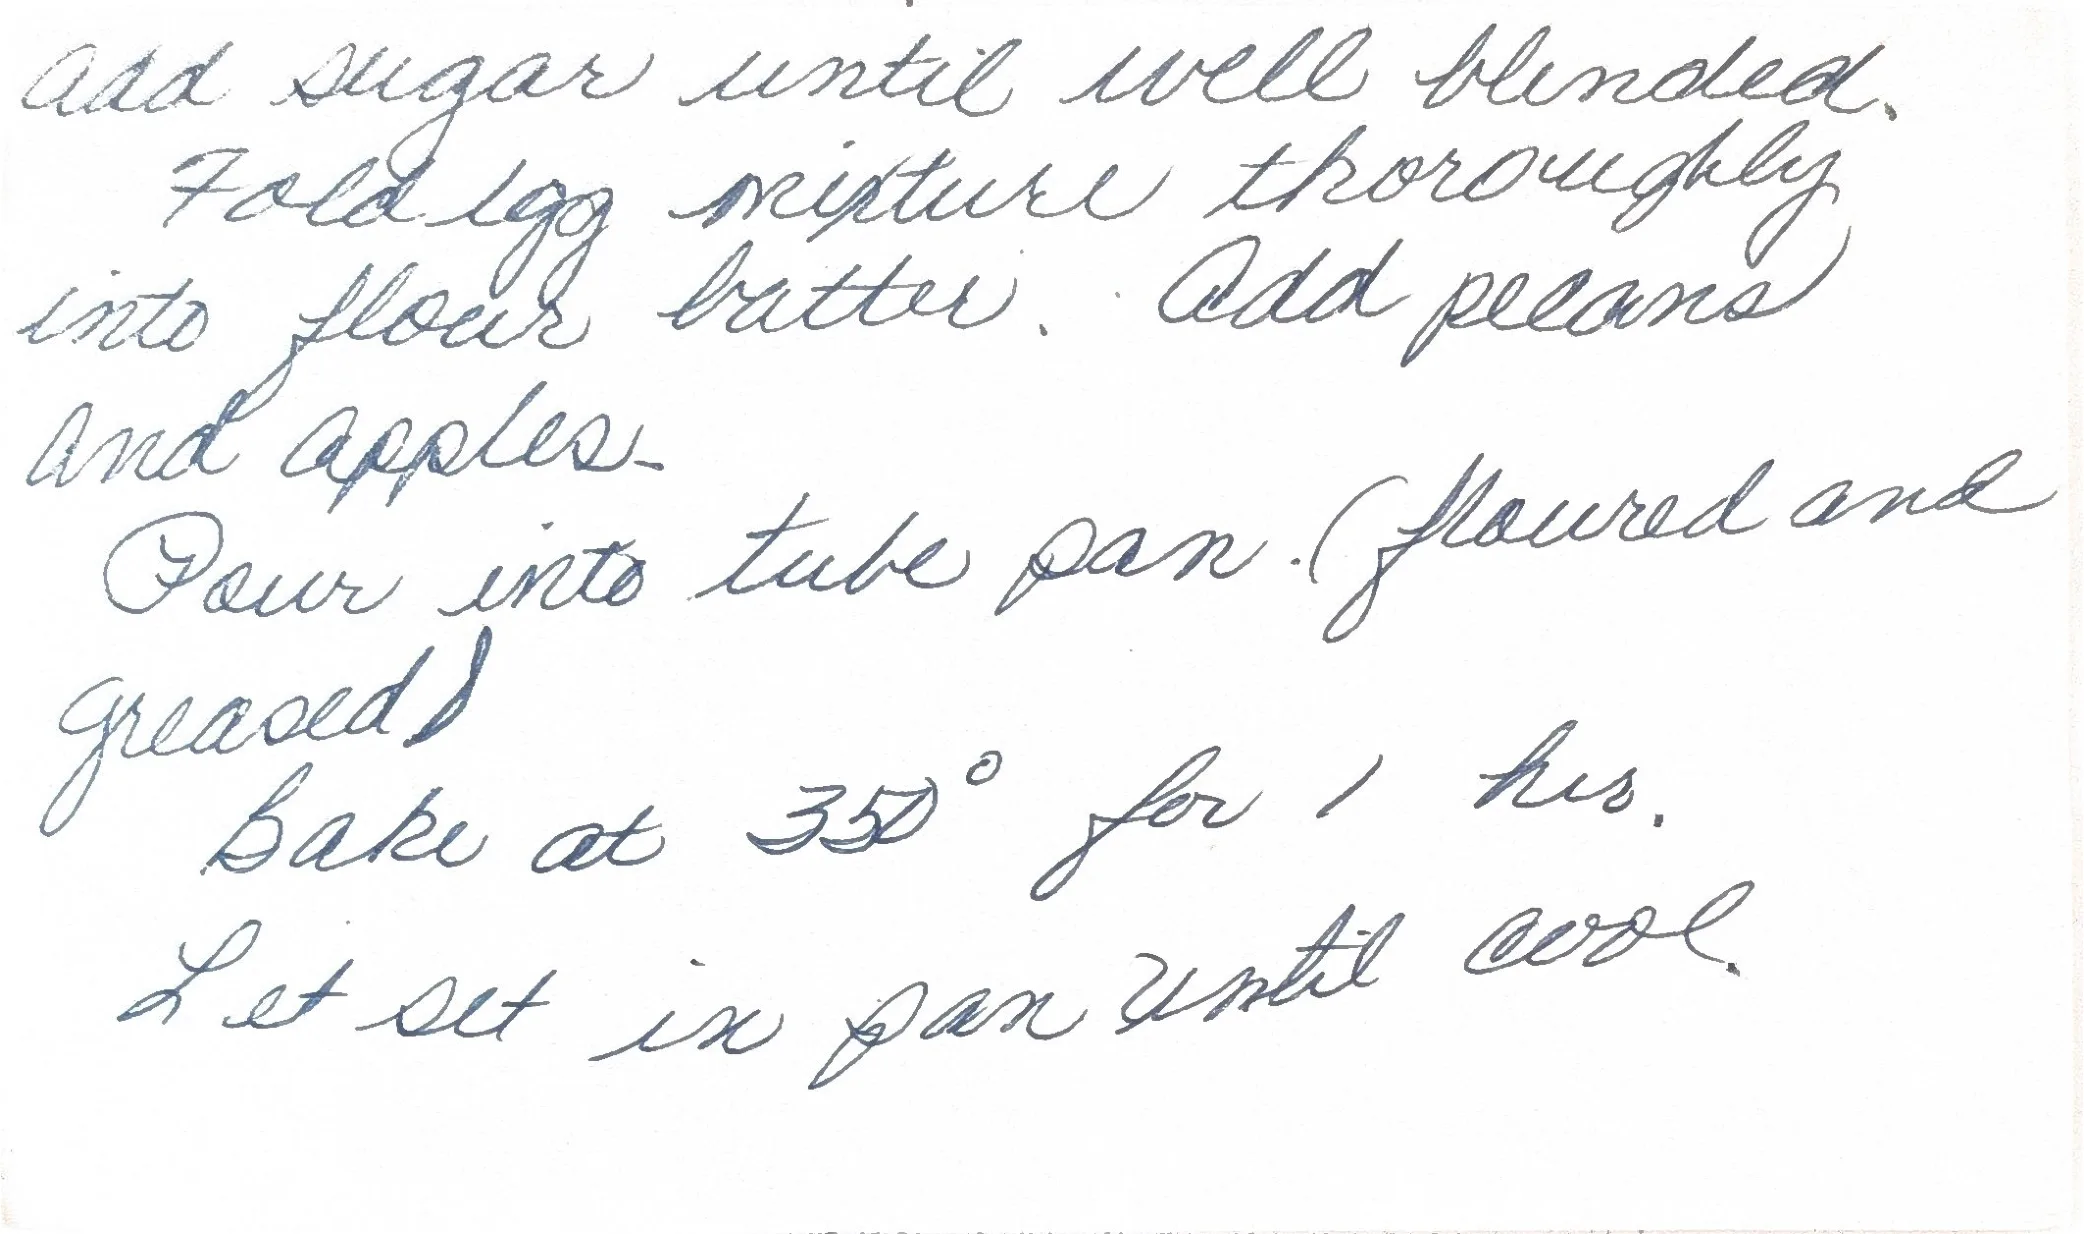 Add sugar until well blended.
Fold egg mixture thoroughly
into flour batter. Add pecans
and apples.
Pour into tube pan. (floured and
greased)
Bake at 350° for 1 hr.
Let set in pan until cool.